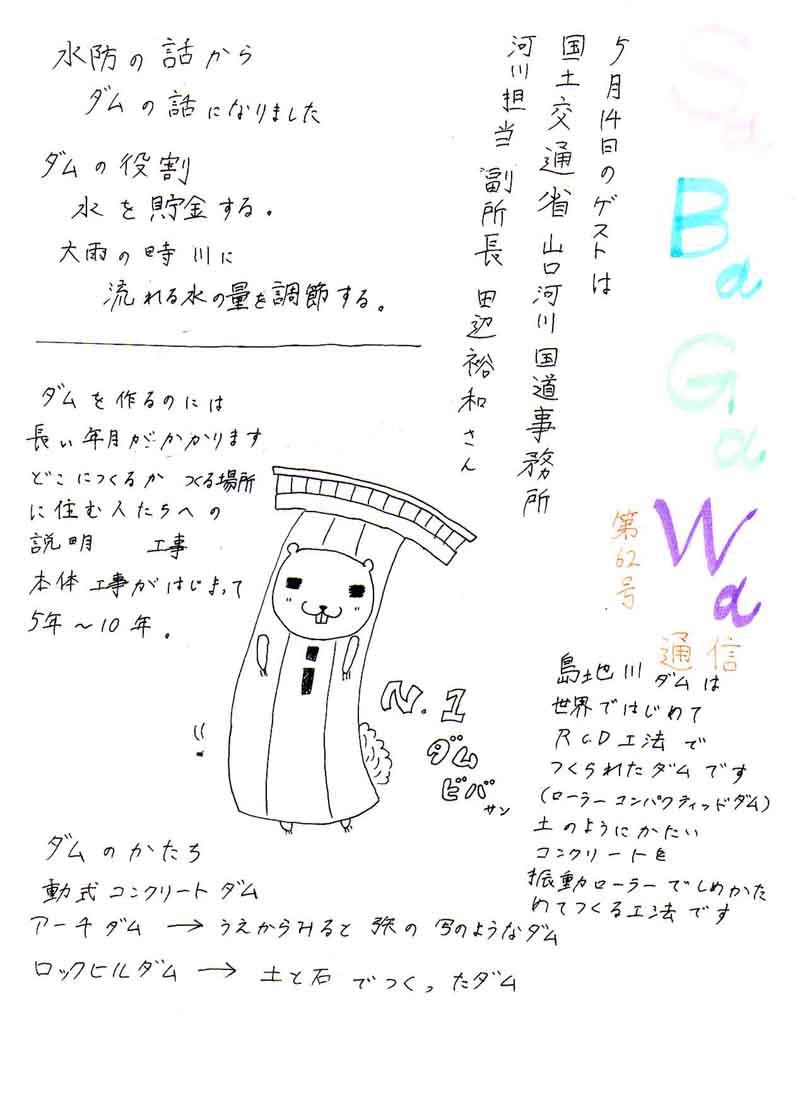 Sa
Ba
Ga
Wa
通信
第62号
5月14日のゲストは
国土交通省 山口河川国道事務所
河川担当 副所長 田辺裕和さん
水防の話から
ダムの話になりました
ダムの役割
水を貯金する。
大雨の時 川に
流れる水の量を調節する。
ダムを作るのには
長い年月がかかります
どこにつくるか つくる場所
に住む人たちへの
説明 工事
本体工事がはじまって
5年～10年。
N.1
ダム
ビバ
サン
島地川ダムは
世界ではじめて
RC.D工法で
つくられたダムです
(ローラーコンパクティッドダム)
土のようにかたい
コンクリートを
振動ローラーでしめかた
めてつくる工法です
ダムのかたち
動式コンクリートダム
アーチダム → うえからみると の のようなダム
ロックヒルダム → 土と石でつくったダム